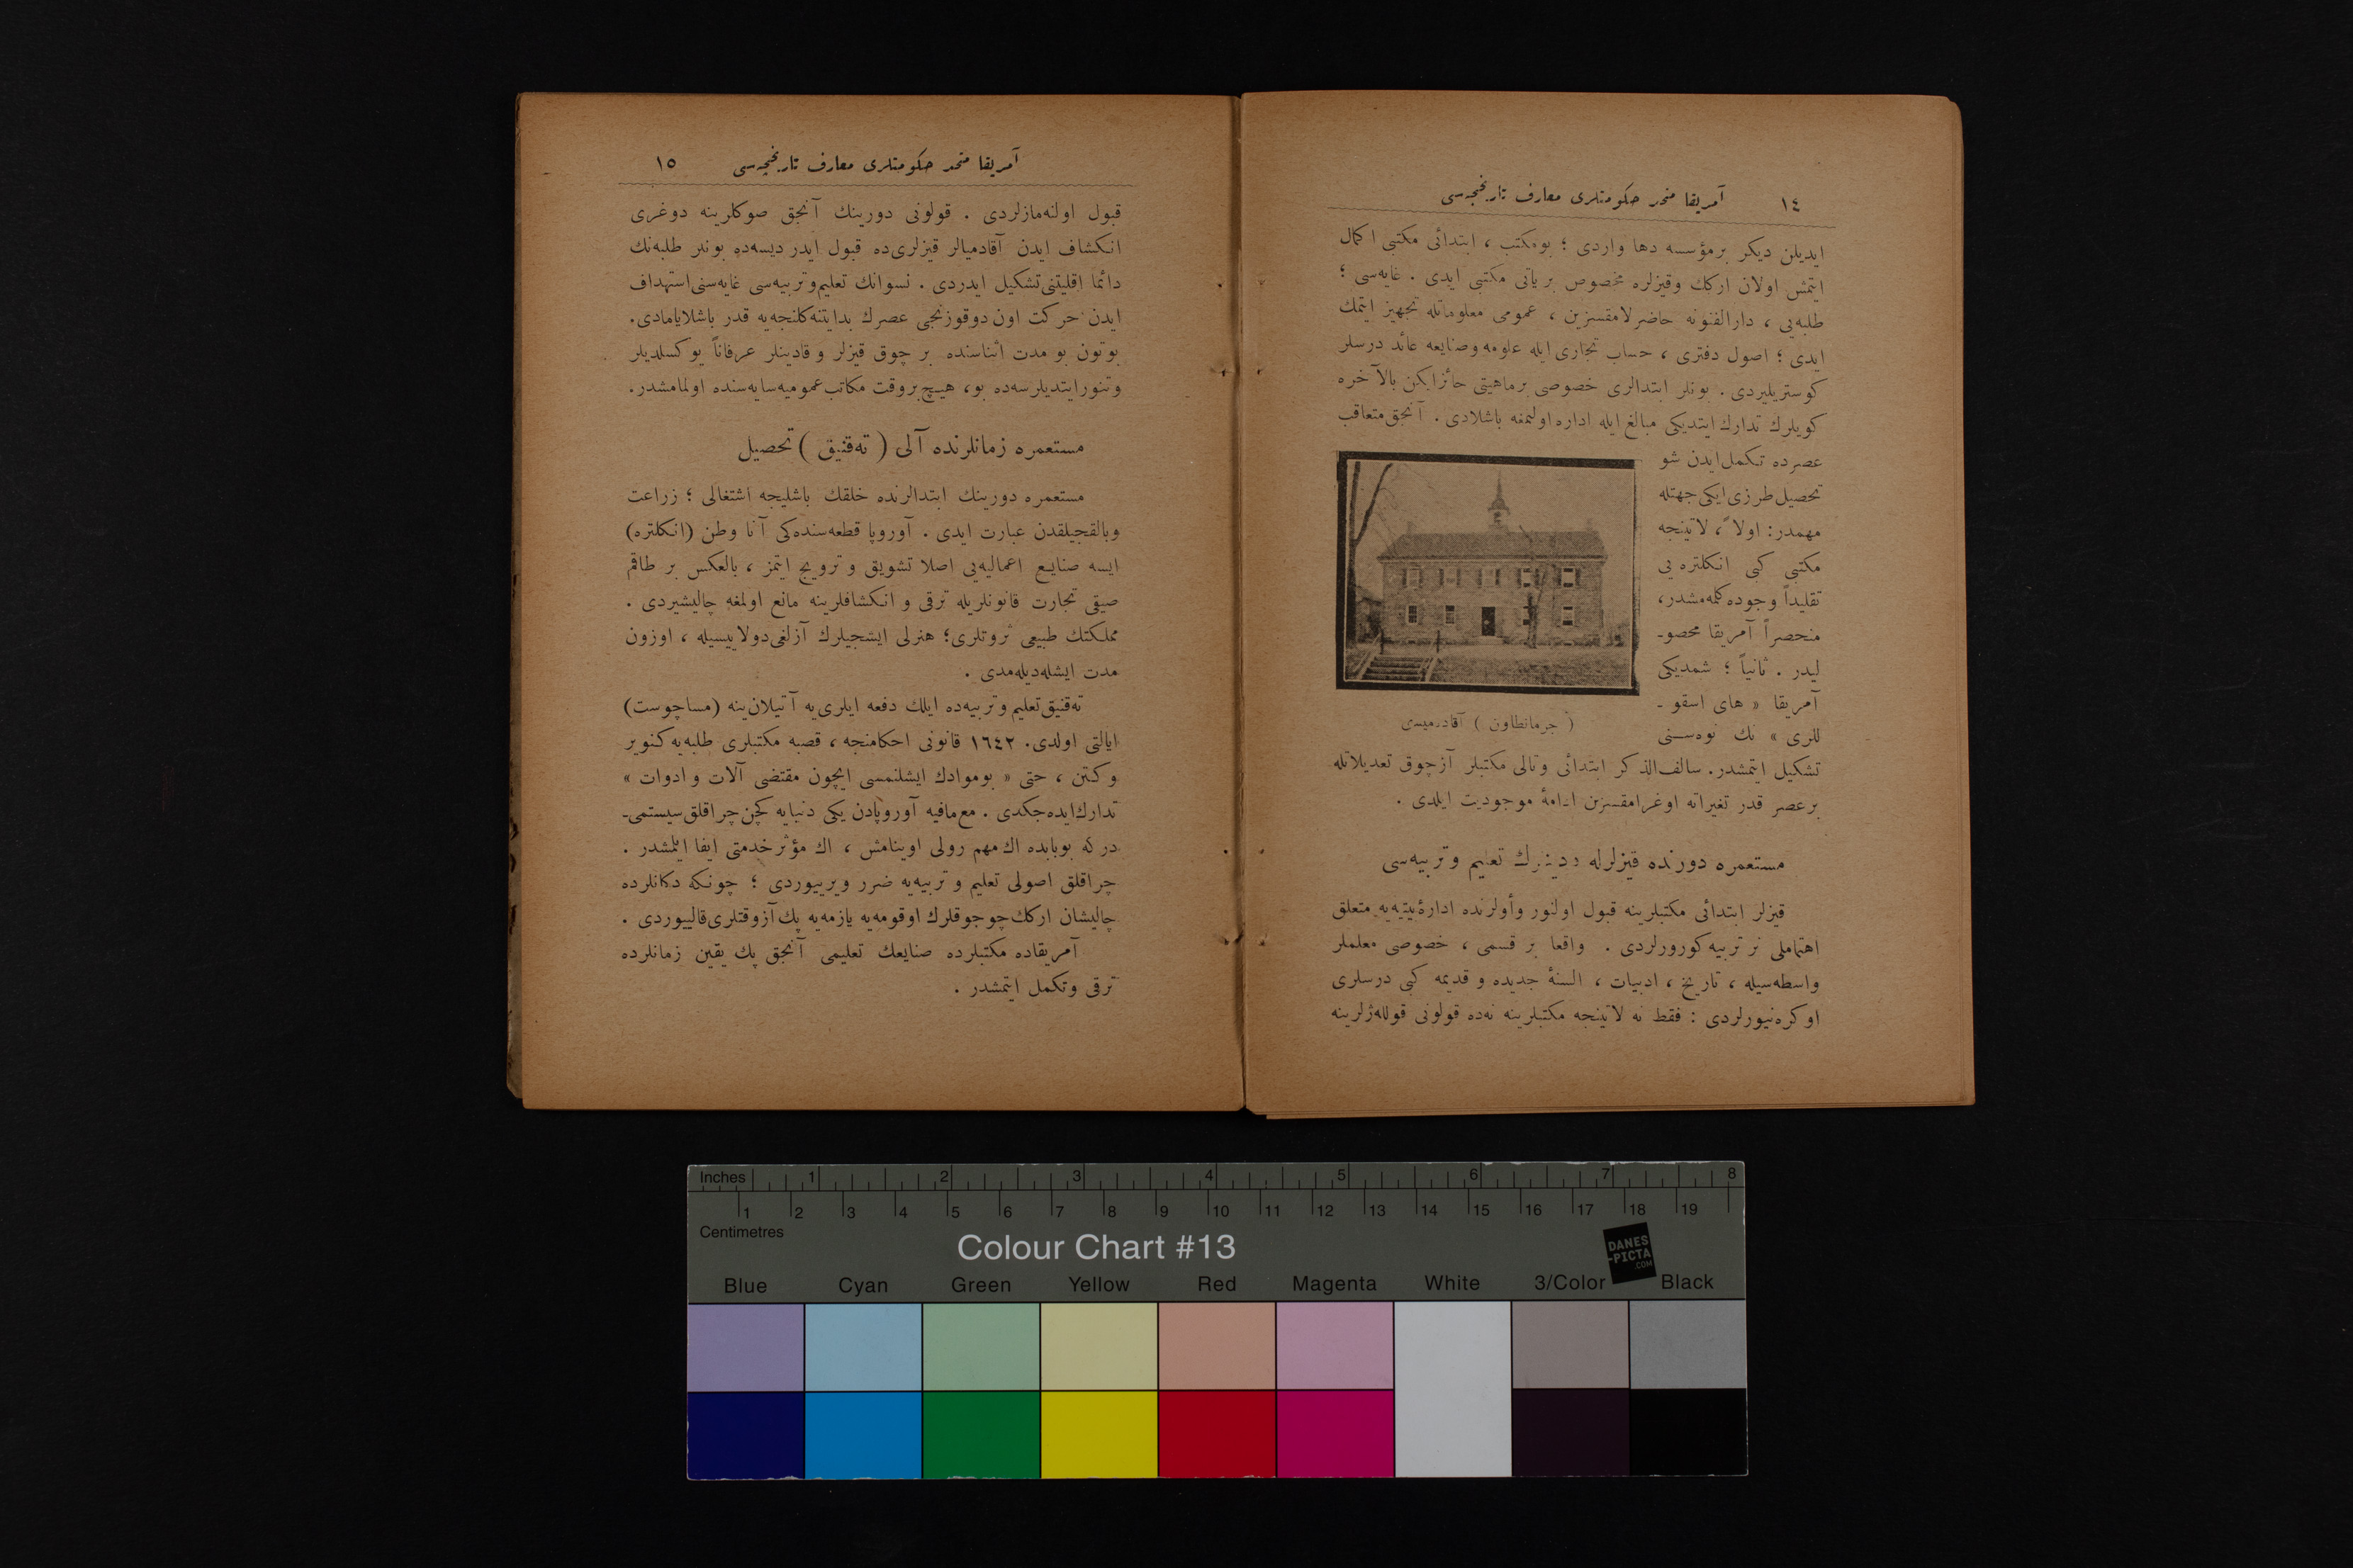 ١٤ آمریقا متحد حكومتلری معارف تاریخچه‌سی
ایدیلن دیكر برمؤسسه دها واردی ؛ بومكتب ، ابتدائی مكتبی اكمال
ایتمش اولان اركك وقیزلره مخصوص بر یاتی مكتبی ایدی . غایه‌سی ؛
طلبه‌یی ، دارالفنونه حاضرلامقسزین ، عمومی معلوماتله تجهیز ایتمك
ایدی ؛ اصول دفتری ، حساب تجاری ایله علومه وصنایعه عائد درسلر
كوستریلیردی . بونلر ابتدالری خصوصی برماهیتی حائزایكن بالآخره
كویلرك تدارك ایتدیكی مبالغ ایله اداره اولنمغه باشلادی . آنجق متعاقب
عصرده تكمل ایدن شو
تحصیل طرزی ایكی جهتله
مهمدر: اولاً ، لاتینجه
مكتبی كبی انكلتره یی
تقلیداً وجوده كلمه‌مشدر،
منحصراً آمریقا محصو-
لیدر . ثانیاً ؛ شمدیكی
آمریقا « های اسقو -
للری » نك نوه‌سنی
( جرمانطاون ) آقاده‌میسی
تشكیل ایتمشدر. سالف‌الذكر ابتدائی وتالی مكتبلر آزچوق تعدیلاتله
برعصر قدر تغیراته اوغرامقسزین ادامهٔ موجودیت ایلدی .
مستعمره دورنده قیزلرله تعلیم وتربیه‌سی
قیزلر ابتدائی مكتبلرینه قبول اولنور وأولرنده ادارهٔ بیتیه‌یه متعلق
اهتماملی تربیه كورورلردی . واقعا بر قسمی ، خصوصی معلملر
واسطه‌سیله ، تاریخ ، ادبیات ، السنهٔ جدیده و قدیمه كبی درسلری
اوكره‌نیورلردی : فقط نه لاتینجه مكتبلرینه نه‌ده قولونی قوللەژلرینه
آمریقا متحد حكومتلری معارف تاریخچه‌سی ١٥
قبول اولنه‌مازلردی . قولونی دورینك آنجق صوكلرینه دوغری
انكشاف ایدن آقادمیالر قیزلری‌ده قبول ایدر دیسه‌ده بونلر طلبه‌نك
دائما اقلیتنی‌تشكیل ایدردی . نسوانك تعلیم‌وتربیه‌سی غایه‌سنی‌استهداف
ایدن حركت اون دوقوزنجی عصرك بدایتنه‌كلنجه‌یه قدر باشلایامادی.
بوتون بو مدت اثناسنده بر چوق قیزلر و قادینلر عرفاناً یوكسلدیلر
وتنورایتدیلرسه‌ده بو، هیچ‌بروقت مكاتب‌عمومیه‌سایه‌سنده اولمامشدر.
مستعمره زمانلرنده آلی ( ته‌قنیق ) تحصیل
مستعمره دورینك ابتدالرنده خلقك باشلیجه اشتغالی ؛ زراعت
وبالقجیلقدن عبارت ایدی . آوروپا قطعه‌سنده‌كی آنا وطن (انكلتره)
ایسه صنایع اعمالیه‌یی اصلا تشویق و ترویج ایتمز ، بالعكس بر طاقم
صیقی تجارت قانونلریله ترقی و انكشافلرینه مانع اولمغه چالیشیردی .
مملكتك طبیعی ثروتلری؛ هنرلی ایشجیلرك آزلغی‌دولاییسیله ، اوزون
مدت ایشله‌دیله‌مدی .
ته‌قنیق‌تعلیم وتربیه‌ده ایلك دفعه ایلری‌یه آتیلان‌ینه (مساچوست)
ایالتی اولدی. ١٦٤٢ قانونی احكامنجه ، قصبه مكتبلری طلبه‌یه‌كنویر
وكتن ، حتی « بوموادك ایشلنمسی ایچون مقتضی آلات و ادوات »
تدارك‌ایده‌جكدی . مع‌مافیه آوروپادن یكی دنیایه كچن‌چراقلق‌سیستمی-
دركه بوبابده اك مهم رولی اوینامش ، اك مؤثرخدمتی ایفا ایلمشدر .
چراقلق اصولی تعلیم و تربیه‌یه ضرر ویرییوردی ؛ چونكه دكانلرده
چالیشان اركك چوجوقلرك اوقومه‌یه یازمه‌یه پك‌آزوقتلری‌قالییوردی .
آمریقاده مكتبلرده صنایعك تعلیمی آنجق پك یقین زمانلرده
ترقی وتكمل ایتمشدر .
Inches 1 2 3 4 5 6 7 8
1 2 3 4 5 6 7 8 9 10 11 12 13 14 15 16 17 18 19
Centimetres
Colour Chart #13
DANES
-PICTA
.COM
Blue Cyan Green Yellow Red Magenta White 3/Color Black